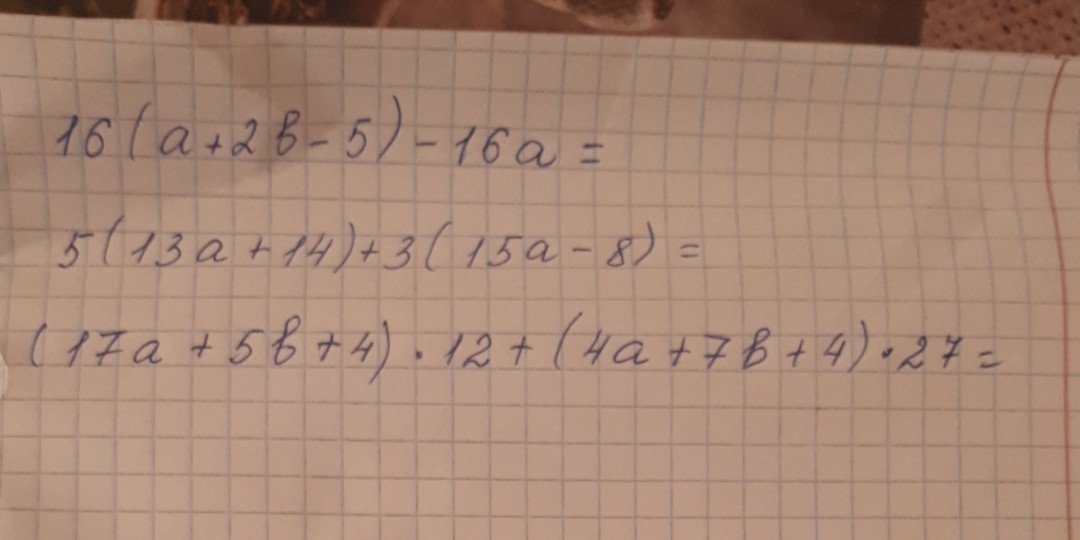 16(a+2b-5)-16a=
5(13a+14)+3(15a-8)=
(17a+5b+4)·12+(4a+7b+4)·27=